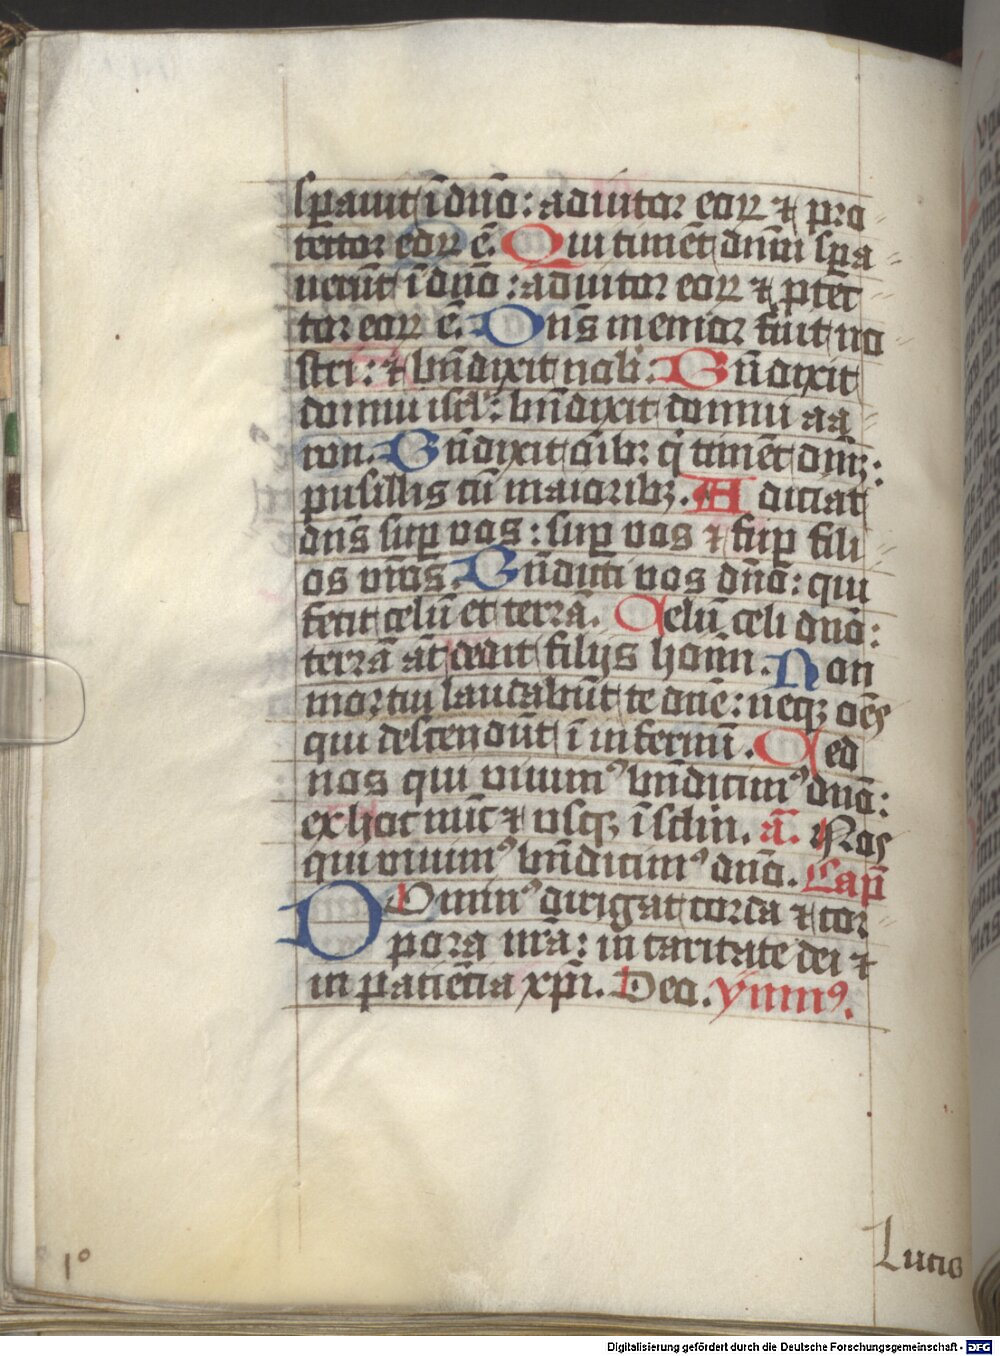 sꝑauit ī dnō: adiutor eoꝝ ⁊ pro
tector eoꝝ ē. Qui timēt dnm̄ sꝑa
uerūt ī dnō: adiutor eoꝝ ⁊ ꝓtec
tor eoꝝ ē. Dns̄ memor fuit no
stri: ⁊ bn̄dixit nob̄. Bn̄dixit
domui isrl̄: bn̄dixit domui aa
ron. Bn̄dixit oībꝫ q̄ timēt dnm̄:
pusillis cū maioribꝫ. Adiciat
dns̄ suꝑ vos: suꝑ vos ⁊ suꝑ fili
os vr̄os. Bn̄dicti vos dnō: qui
fecit celū et terrā. Celū celi dnō:
terrā at̄ dedit filijs hoīm. Non
mortui laudabūt te dnē: neqꝫ oēs
qui descendūt ī infernū. Sed
nos qui viuimꝰ bn̄dicimꝰ dnō:
ex hoc nūc ⁊ vsqꝫ ī sclm̄. ā. Nos
qui viuimꝰ bn̄dicimꝰ dnō. Cap̄
Dominꝰ dirigat corda ⁊ cor
pora nr̄a: in caritate dei ⁊
in paciētia xp̄i. Deo. ymnꝰ.
1º
Lucis
Digitalisierung gefördert durch die Deutsche Forschungsgemeinschaft - DFG